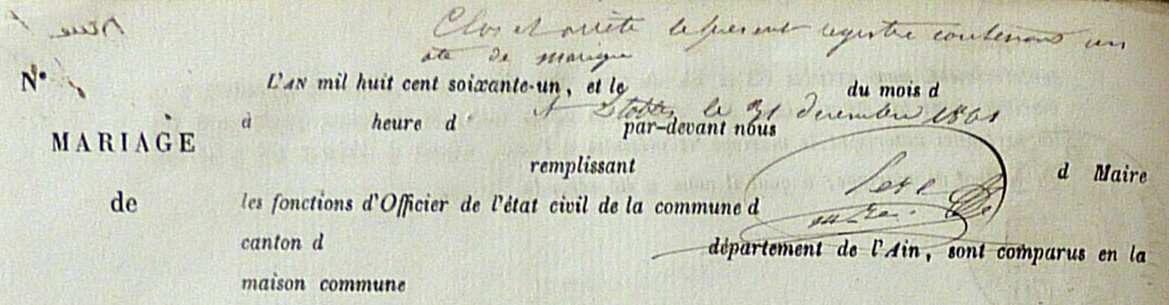 Clos et arrêté le present registre contenant un
ate de mariage
N°
L'AN mil huit cent soixante-un, et le du mois d
A le 31 decembre 1861
à heure d par-devant nous
MARIAGE
remplissant d Maire
de
les fonctions d'Officier de l'état civil de la commune d
canton d département de l'Ain, sont comparus en la
maison commune